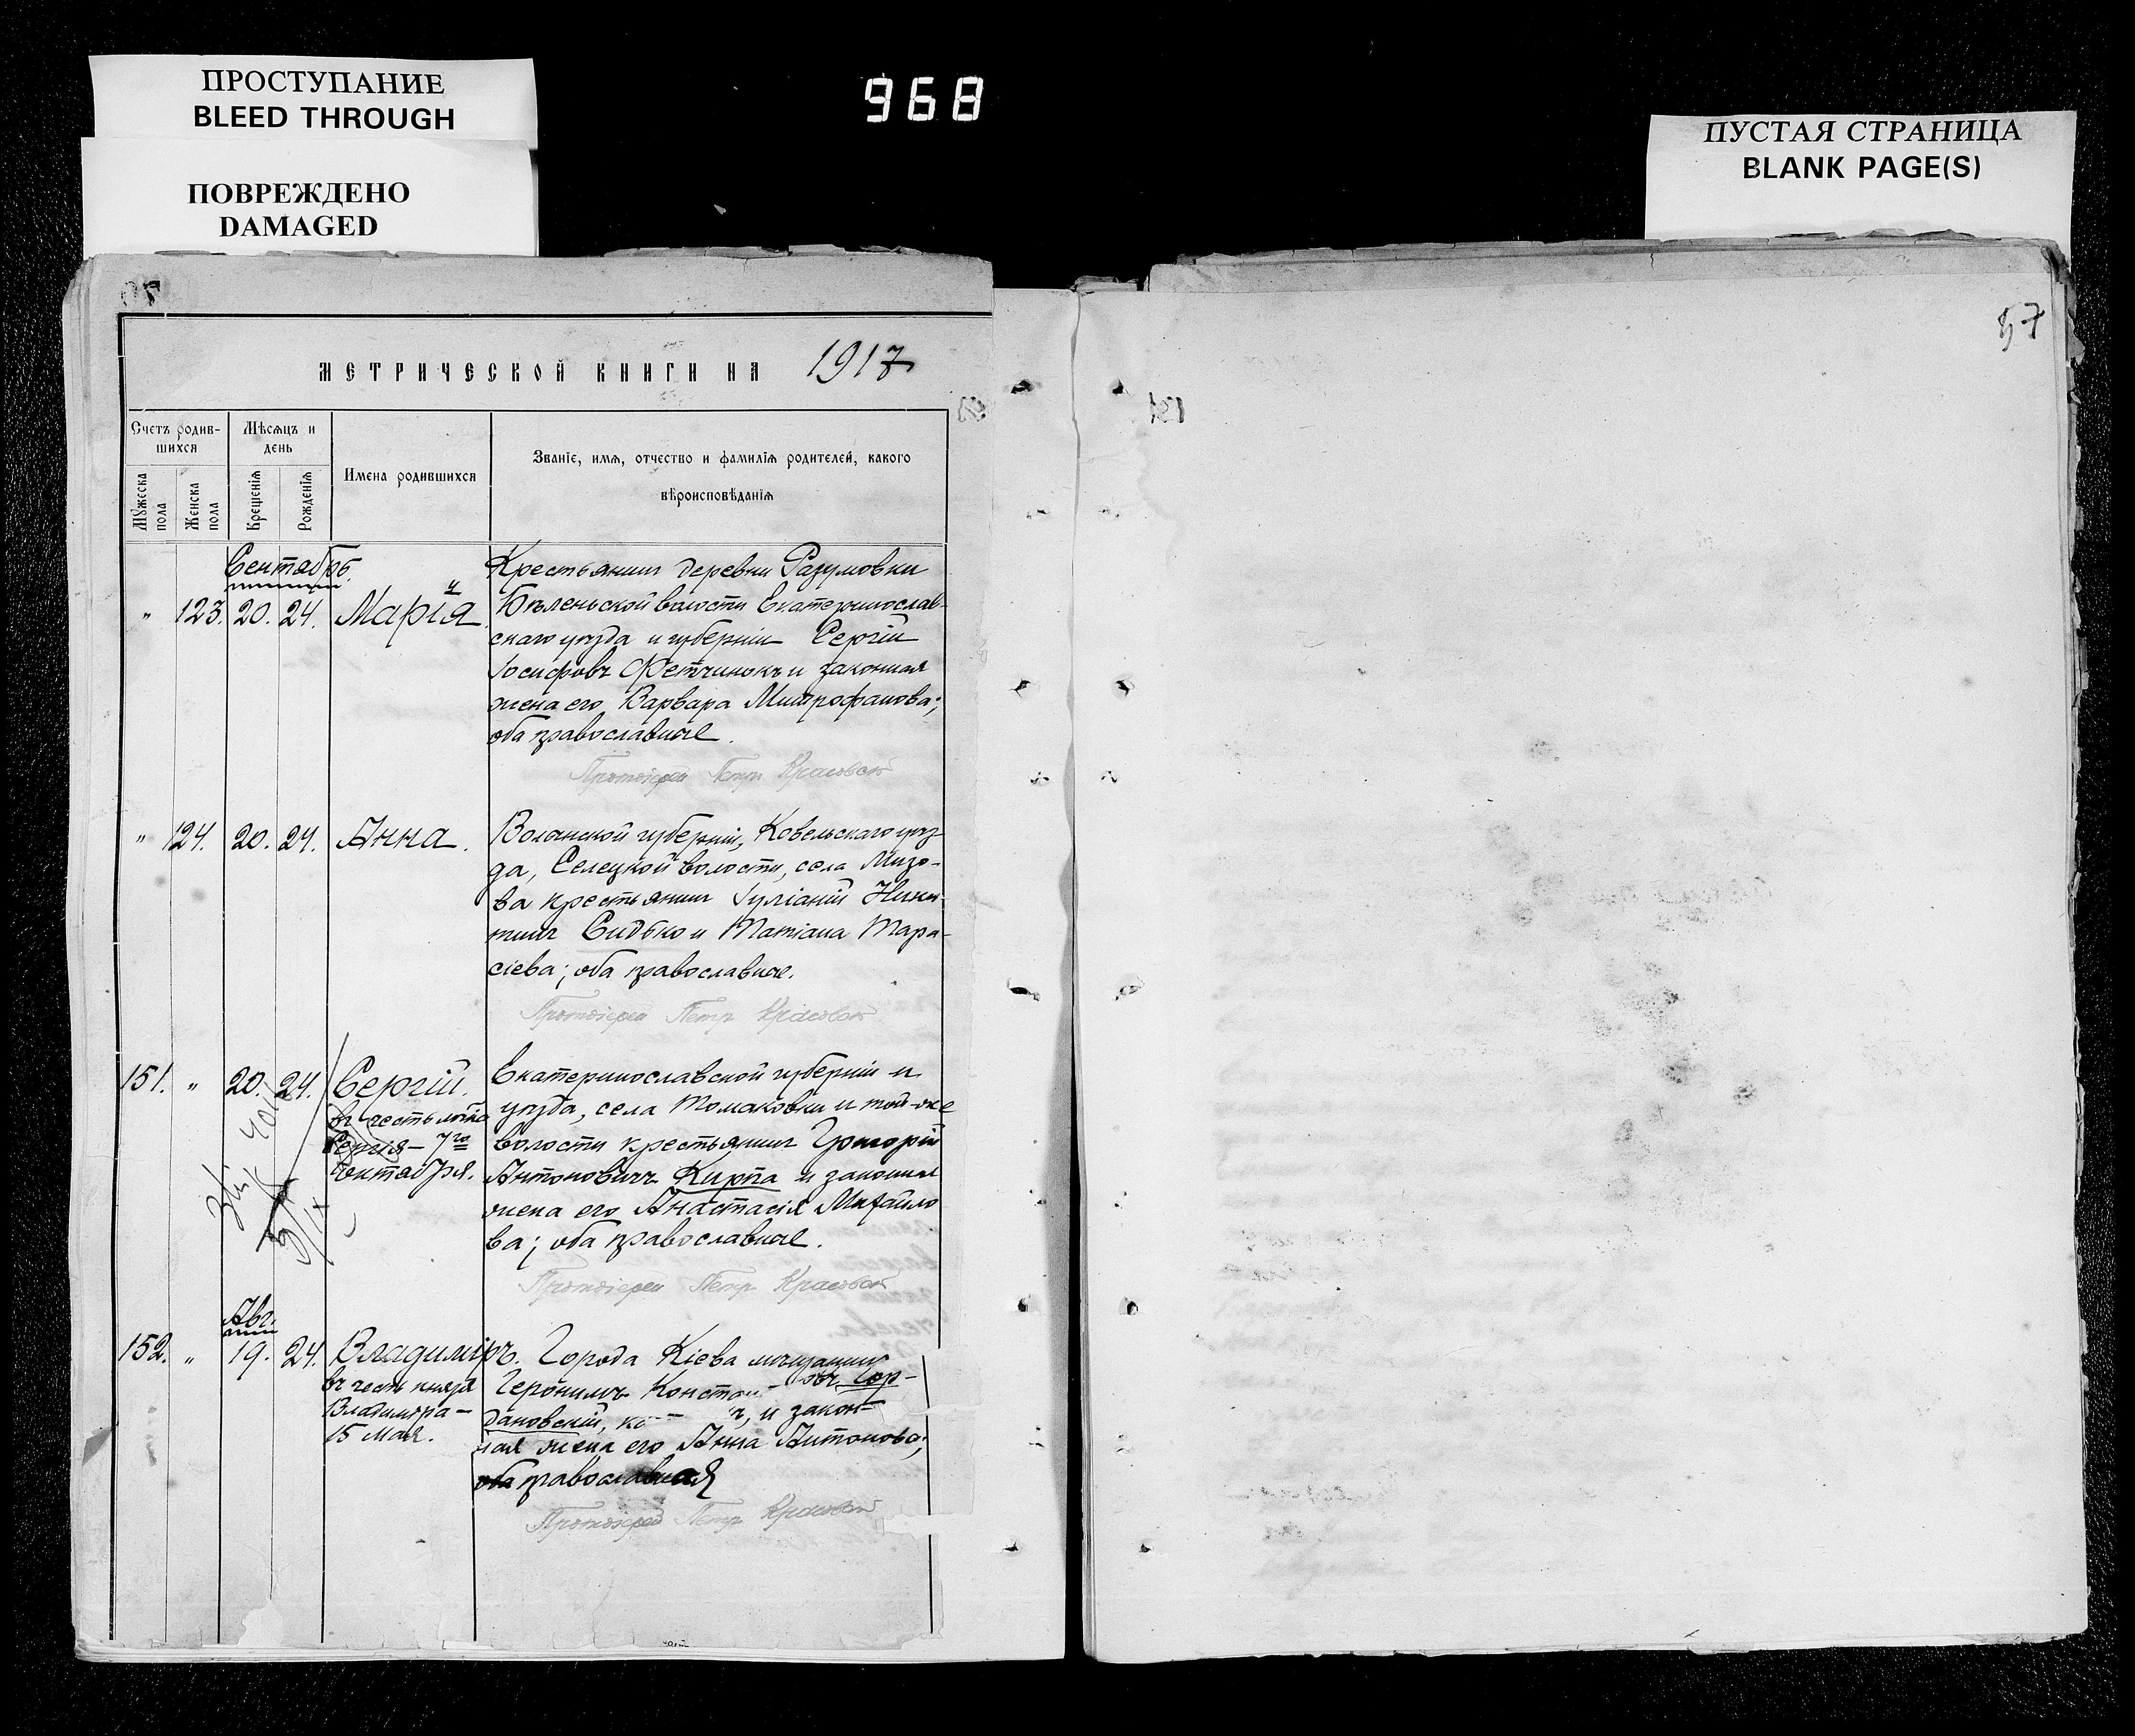 ПРОСТУПАНИЕ
BLEED THROUGH
ПОВРЕЖДЕНО
DAMAGED
968
ПУСТАЯ СТРАНИЦА
BLANK PAGE(S)
57
МЕТРИЧЕСКОЙ КНИГИ НА 1917
Счетъ родив-
шихся
Мѣсяцъ и
день
Имена родившихся
Званіе, имя, отчество и фамилія родителей, какого
вѣроисповѣданія
Мужеска
пола
Женска
пола
Крещенія
Рожденія
Сентябрь.
Крестьянинъ деревни Разумовки
" 123. 20. 24. Марія Бѣленьской волости Екатеринослав-
скаго уѣзда и губерніи Сергій
Іосифовъ Фетчинокъ и законная
жена его Варвара Митрофанова;
оба православные.
Протоіерей Петръ Красовскій
" 124. 20. 24. Анна. Волынской губерніи, Ковельскаго уѣз-
да, Селецкой волости, села Мизо-
ва крестьянинъ Іуліаній Ники-
тинъ Сидько и Татіана Тара-
сіева; оба православные.
Протоіерей Петръ Красовскій
151. " 20. 24. Сергій. Екатеринославской губерніи и
уѣзда, села Томаковки и той-же
въ честь
Сергія – 7го волости крестьянинъ Григорій
Октября. Антоновичъ Кирпа и законная
жена его Анастасія Михайло
ва; оба православные.
Протоіерей Петръ Красовскій
Авг.
152. " 19. 24. Владиміръ. Города Кіева мѣщанинъ
въ честь князя Іеронимъ Конст Гор-
Владиміра – дановскій, и закон-
15 мая. ная жена его Анна Антонова;
оба православная
Протоіерей Петръ Красовскій